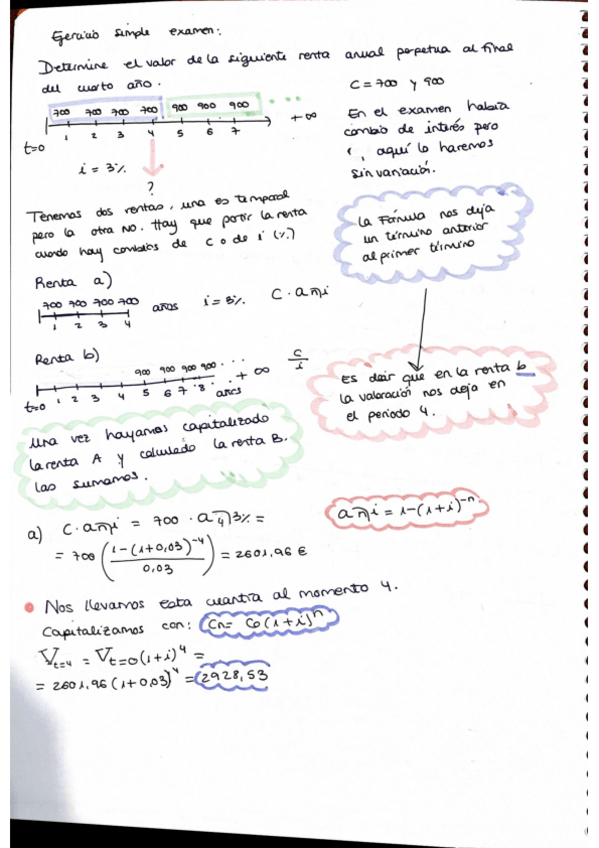 Ejercicio simple examen:
Determine el valor de la siguiente renta anual perpetua al final
del cuarto año.
C = 700 y 900
700 700 700 700 900 900 900 ...
1 2 3 4 5 6 7 + ∞
t=0
i = 3%
?
En el examen habría
cambio de interés pero
aquí lo haremos
sin variación.
Tenemos dos rentas, una es temporal
pero la otra no. Hay que partir la renta
cuando hay cambios de C o de i (%)
La Fórmula nos deja
un término anterior
al primer término
Renta a)
700 700 700 700
1 2 3 4
años i = 3% C · an̅|i
Renta b)
900 900 900 900 ...
t=0 1 2 3 4 5 6 7 8 .. años + ∞
C/i
Es decir que en la renta b
la valoración nos deja en
el periodo 4.
Una vez hayamos capitalizado
la renta A y calculado la renta B.
las sumamos.
a) C · an̅|i = 700 · a4̅|3% =
an̅|i = 1-(1+i)^-n
= 700 ( (1-(1+0,03)^-4) / 0,03 ) = 2601,96 €
Nos llevamos esta cuantía al momento 4.
Capitalizamos con: Cn = C0(1+i)^n
Vt=4 = Vt=0(1+i)^4 =
= 2601,96 (1+0,03)^4 = 2928,53